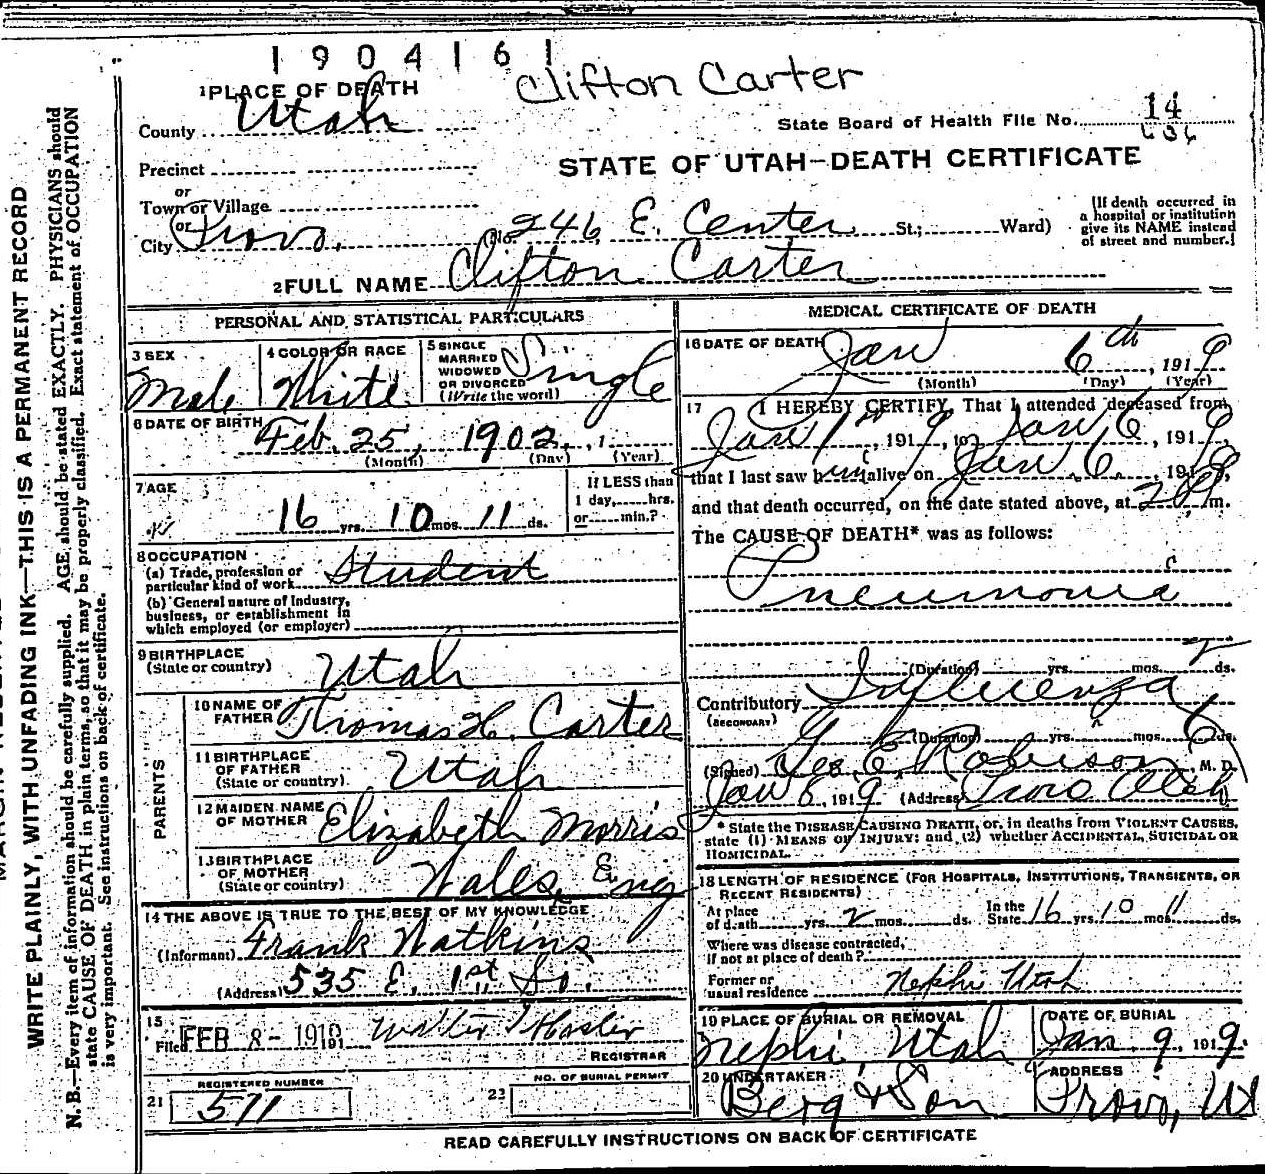 1904161
Clifton Carter
1 PLACE OF DEATH
County Utah
State Board of Health File No. 14
636
Precinct
STATE OF UTAH—DEATH CERTIFICATE
or
Town or Village
or
City Provo. (No. 246 E. Center St.; Ward)
[If death occurred in
a hospital or institution
give its NAME instead
of street and number.]
2 FULL NAME Clifton Carter
PERSONAL AND STATISTICAL PARTICULARS
3 SEX
Male
4 COLOR OR RACE
White
5 SINGLE
MARRIED
WIDOWED
OR DIVORCED
(Write the word)
Single
6 DATE OF BIRTH
Feb. 25, 1902, 1
(Month) (Day) (Year)
7 AGE
16 yrs. 10 mos. 11 ds.
If LESS than
1 day, hrs.
or min.?
8 OCCUPATION
(a) Trade, profession or
particular kind of work Student
(b) General nature of industry,
business, or establishment in
which employed (or employer)
9 BIRTHPLACE
(State or country) Utah
PARENTS
10 NAME OF
FATHER Thomas H. Carter
11 BIRTHPLACE
OF FATHER
(State or country) Utah
12 MAIDEN NAME
OF MOTHER Elizabeth Morris
13 BIRTHPLACE
OF MOTHER
(State or country) Wales, Eng
14 THE ABOVE IS TRUE TO THE BEST OF MY KNOWLEDGE
(Informant) Frank Watkins
(Address) 535 E. 1st So.
15
Filed FEB 8 - 1919 191 Walter T Hasler
REGISTRAR
REGISTERED NUMBER
21 571
NO. OF BURIAL PERMIT
22
MEDICAL CERTIFICATE OF DEATH
16 DATE OF DEATH
Jan 6th, 1919
(Month) (Day) (Year)
17 I HEREBY CERTIFY, That I attended deceased from
Jan 1st, 1919, to Jan 6, 1919,
that I last saw him alive on Jan 6, 1919,
and that death occurred, on the date stated above, at m.
The CAUSE OF DEATH* was as follows:
Pneumonia
(Duration) yrs. mos. 2 ds.
Contributory Influenza
(SECONDARY)
(Duration) yrs. mos. 6 ds.
(Signed) Geo. E. Robison, M. D.
Jan 8, 1919 (Address) Provo Utah
* State the DISEASE CAUSING DEATH, or, in deaths from VIOLENT CAUSES,
state (1) MEANS OF INJURY; and (2) whether ACCIDENTAL, SUICIDAL OR
HOMICIDAL.
18 LENGTH OF RESIDENCE (FOR HOSPITALS, INSTITUTIONS, TRANSIENTS, OR
RECENT RESIDENTS)
At place
of death yrs. 2 mos. ds.
In the
State 16 yrs. 10 mos. 11 ds.
Where was disease contracted,
if not at place of death?
Former or
usual residence Nephi Utah
19 PLACE OF BURIAL OR REMOVAL
Nephi, Utah
DATE OF BURIAL
Jan. 9, 1919.
20 UNDERTAKER
Berg & Son
ADDRESS
Provo, Ut
READ CAREFULLY INSTRUCTIONS ON BACK OF CERTIFICATE
WRITE PLAINLY, WITH UNFADING INK—THIS IS A PERMANENT RECORD
N. B.—Every item of information should be carefully supplied. AGE should be stated EXACTLY. PHYSICIANS should
state CAUSE OF DEATH in plain terms, so that it may be properly classified. Exact statement of OCCUPATION
is very important. See instructions on back of certificate.